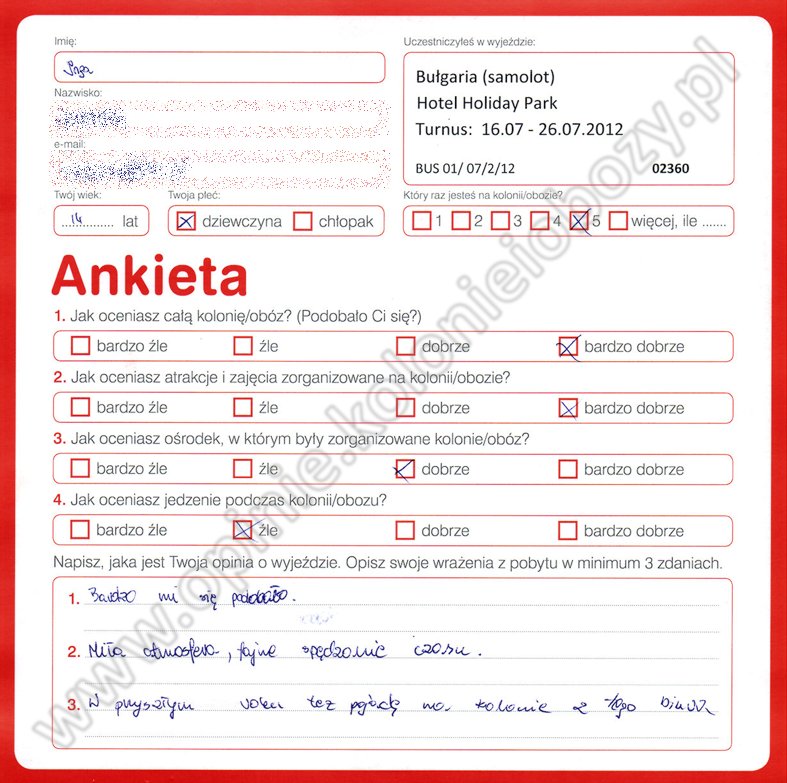 Imię:
Inga
Uczestniczyłeś w wyjeździe:
Bułgaria (samolot)
Hotel Holiday Park
Turnus: 16.07 - 26.07.2012
BUS 01/ 07/2/12 02360
Nazwisko:
e-mail:
Twój wiek:
14 lat
Twoja płeć:
dziewczyna chłopak
Który raz jesteś na kolonii/obozie?
1 2 3 4 5 więcej, ile .......
Ankieta
1. Jak oceniasz całą kolonię/obóz? (Podobało Ci się?)
bardzo źle źle dobrze bardzo dobrze
2. Jak oceniasz atrakcje i zajęcia zorganizowane na kolonii/obozie?
bardzo źle źle dobrze bardzo dobrze
3. Jak oceniasz ośrodek, w którym były zorganizowane kolonie/obóz?
bardzo źle źle dobrze bardzo dobrze
4. Jak oceniasz jedzenie podczas kolonii/obozu?
bardzo źle źle dobrze bardzo dobrze
Napisz, jaka jest Twoja opinia o wyjeździe. Opisz swoje wrażenia z pobytu w minimum 3 zdaniach.
1. Bardzo mi się podobało.
2. Miła atmosfera, fajne spędzanie czasu.
3. W przyszłym roku też pojadę na kolonie z tego biura
www.opinie.kolonieiobozy.pl